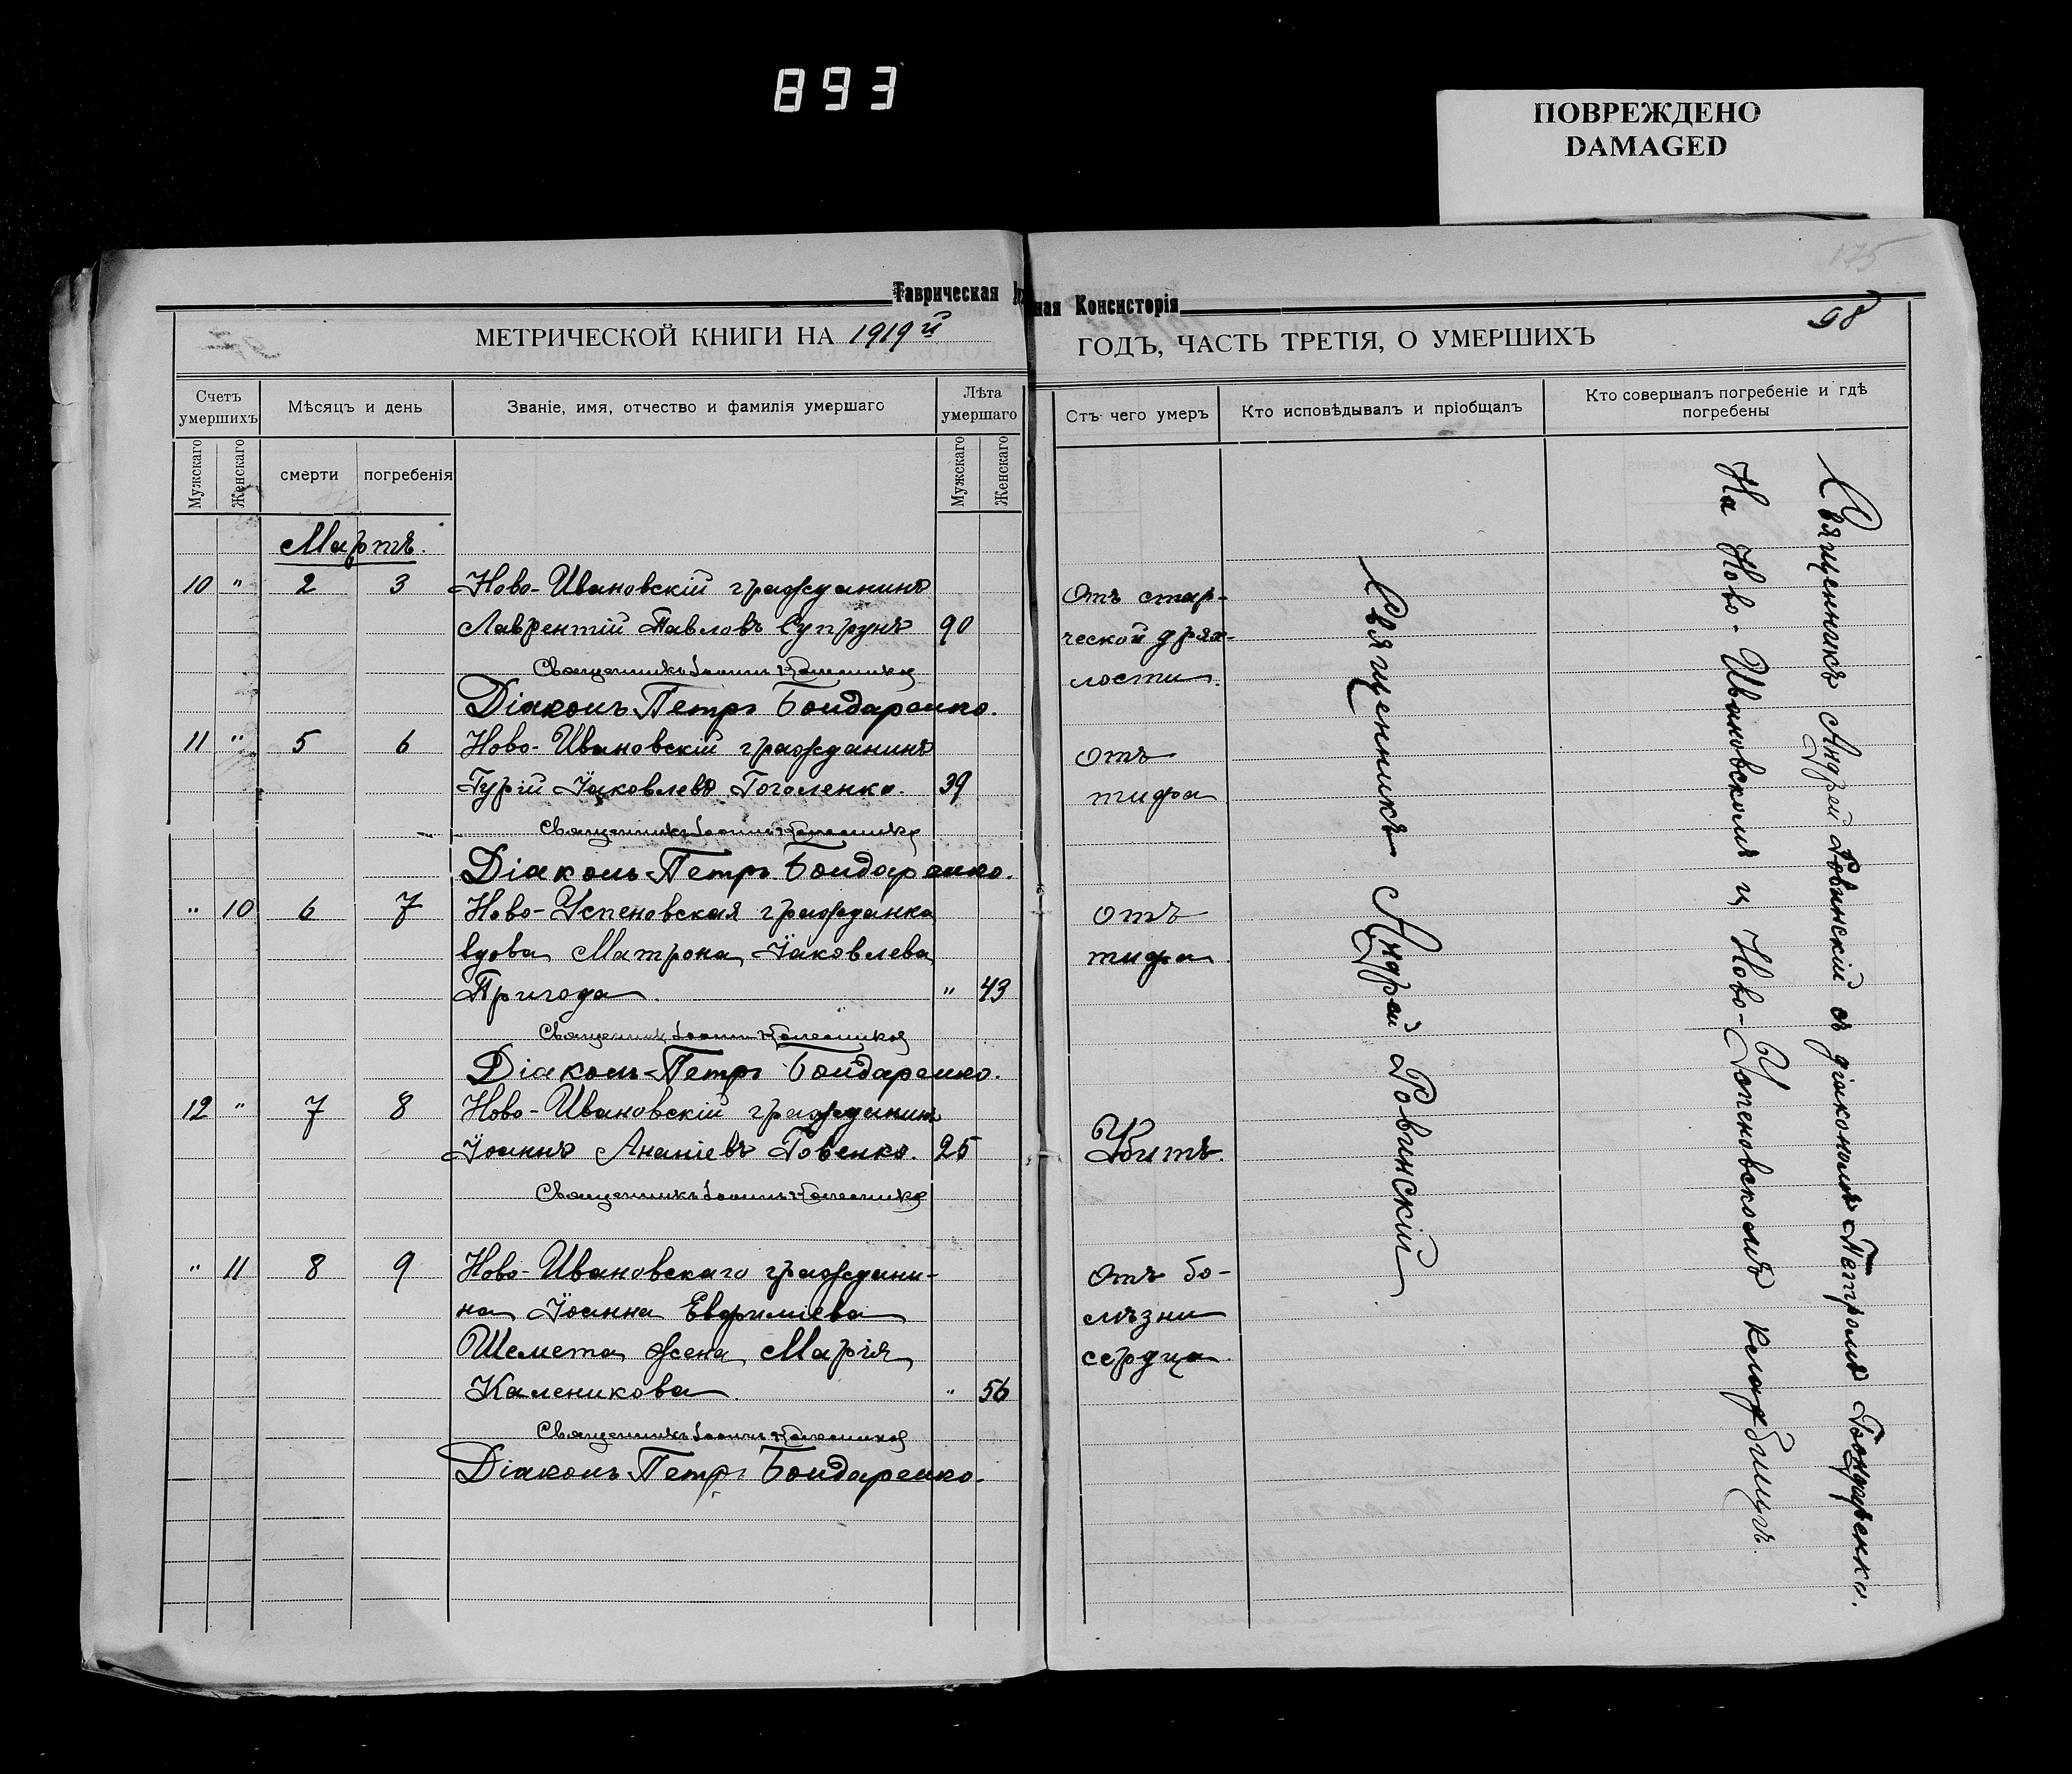 893
ПОВРЕЖДЕНО
DAMAGED
175
98
Таврическая
ная Консисторія
МЕТРИЧЕСКОЙ КНИГИ НА 1919й
ГОДЪ, ЧАСТЬ ТРЕТІЯ, О УМЕРШИХЪ
Счетъ умершихъ
Мужскаго
Женскаго
Мѣсяцъ и день
смерти
погребенія
Званіе, имя, отчество и фамилія умершаго
Лѣта умершаго
Мужскаго
Женскаго
Отъ чего умеръ
Кто исповѣдывалъ и пріобщалъ
Кто совершалъ погребеніе и гдѣ
погребены
Мартъ.
10 " 2 3 Ново-Ивановскій гражданинъ
Лаврентій Павловъ Супрунъ 90
Священникъ Іоаннъ Колесниковъ
Діаконъ Петръ Бондаренко.
Отъ стар-
ческой дрях-
лости.
11 " 5 6 Ново-Ивановскій гражданинъ
Гурій Іаковлевъ Гоголенко. 39
Священникъ Іоаннъ Колесниковъ
Діаконъ Петръ Бондаренко.
отъ
тифа
" 10 6 7 Ново-Успеновская гражданка
вдова Матрона Іаковлева
Пригода. " 43
Священникъ Іоаннъ Колесниковъ
Діаконъ Петръ Бондаренко.
отъ
тифа
12 " 7 8 Ново-Ивановскій гражданинъ
Іоаннъ Ананіевъ Говенко. 25
Священникъ Іоаннъ Колесниковъ
Убитъ.
" 11 8 9 Ново-Ивановскаго граждани-
на Іоанна Евфиміева
Шемета жена Марія
Каленикова. " 56
Священникъ Іоаннъ Колесниковъ
Діаконъ Петръ Бондаренко.
Отъ бо-
лѣзни
сердца.
Священникъ Андрей Ровинскій
Священникъ Андрей Ровинскій съ діакономъ Петромъ Бондаренко.
На Ново-Ивановскомъ и Ново-Успеновскомъ кладбищѣ.